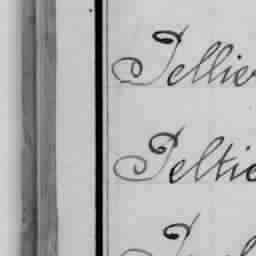 Pellier
Peltie